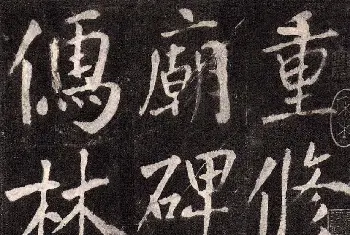 重修
廟碑
儒林